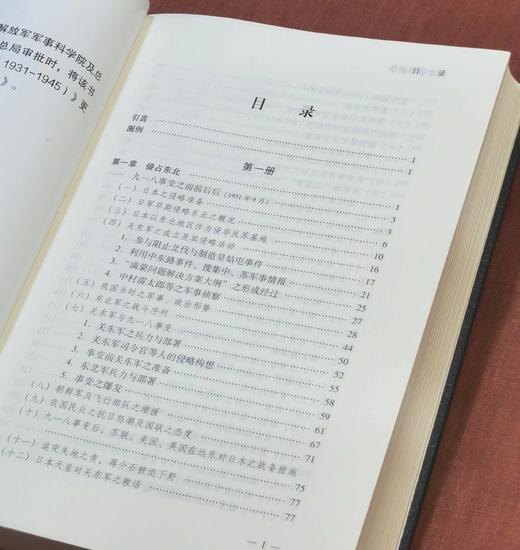 解放军军事科学院及总
总局审批时，将该书
（1931-1945）》更
》。
目录
目 录
引言 1
图例 1
第一册
第一章 侵占东北 1
一 九一八事变之前前后后（1931年9月） 3
（一）日本之侵略准备 3
（二）日军早期侵略东北之概况 6
（三）日本以东北地区作为侵华反苏基地 10
（四）关东军之成立及其侵略活动 16
1. 参与阻止北伐与制造皇姑屯事件 17
2. 利用中东路事件，搜集中、苏军事情报 21
3. “满蒙问题解决方案大纲”之形成经过 25
4. 中村震太郎等之军事侦察 27
（五）我国当时之军事、政治形势 28
（六）东北军之战斗序列 44
（七）关东军与九一八事变 50
1. 关东军之兵力与部署 52
2. 关东军司令官等人的侵略构想 55
3. 事变前关东军之准备 58
4. 东北军兵力与部署 59
5. 事变之爆发 61
（八）朝鲜军及飞行部队之增援 67
（九）我国民众之抗日怒潮及国联之态度 71
（十）九一八事变后，苏联、美国、英国在远东对日本之战备措施 75
（十一）追究失地之责，蒋介石被迫下野 77
（十二）日本天皇对关东军之敕语 77
— 1 —